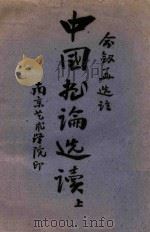 俞剑华选注
中國画論选读
上
南京艺术学院印